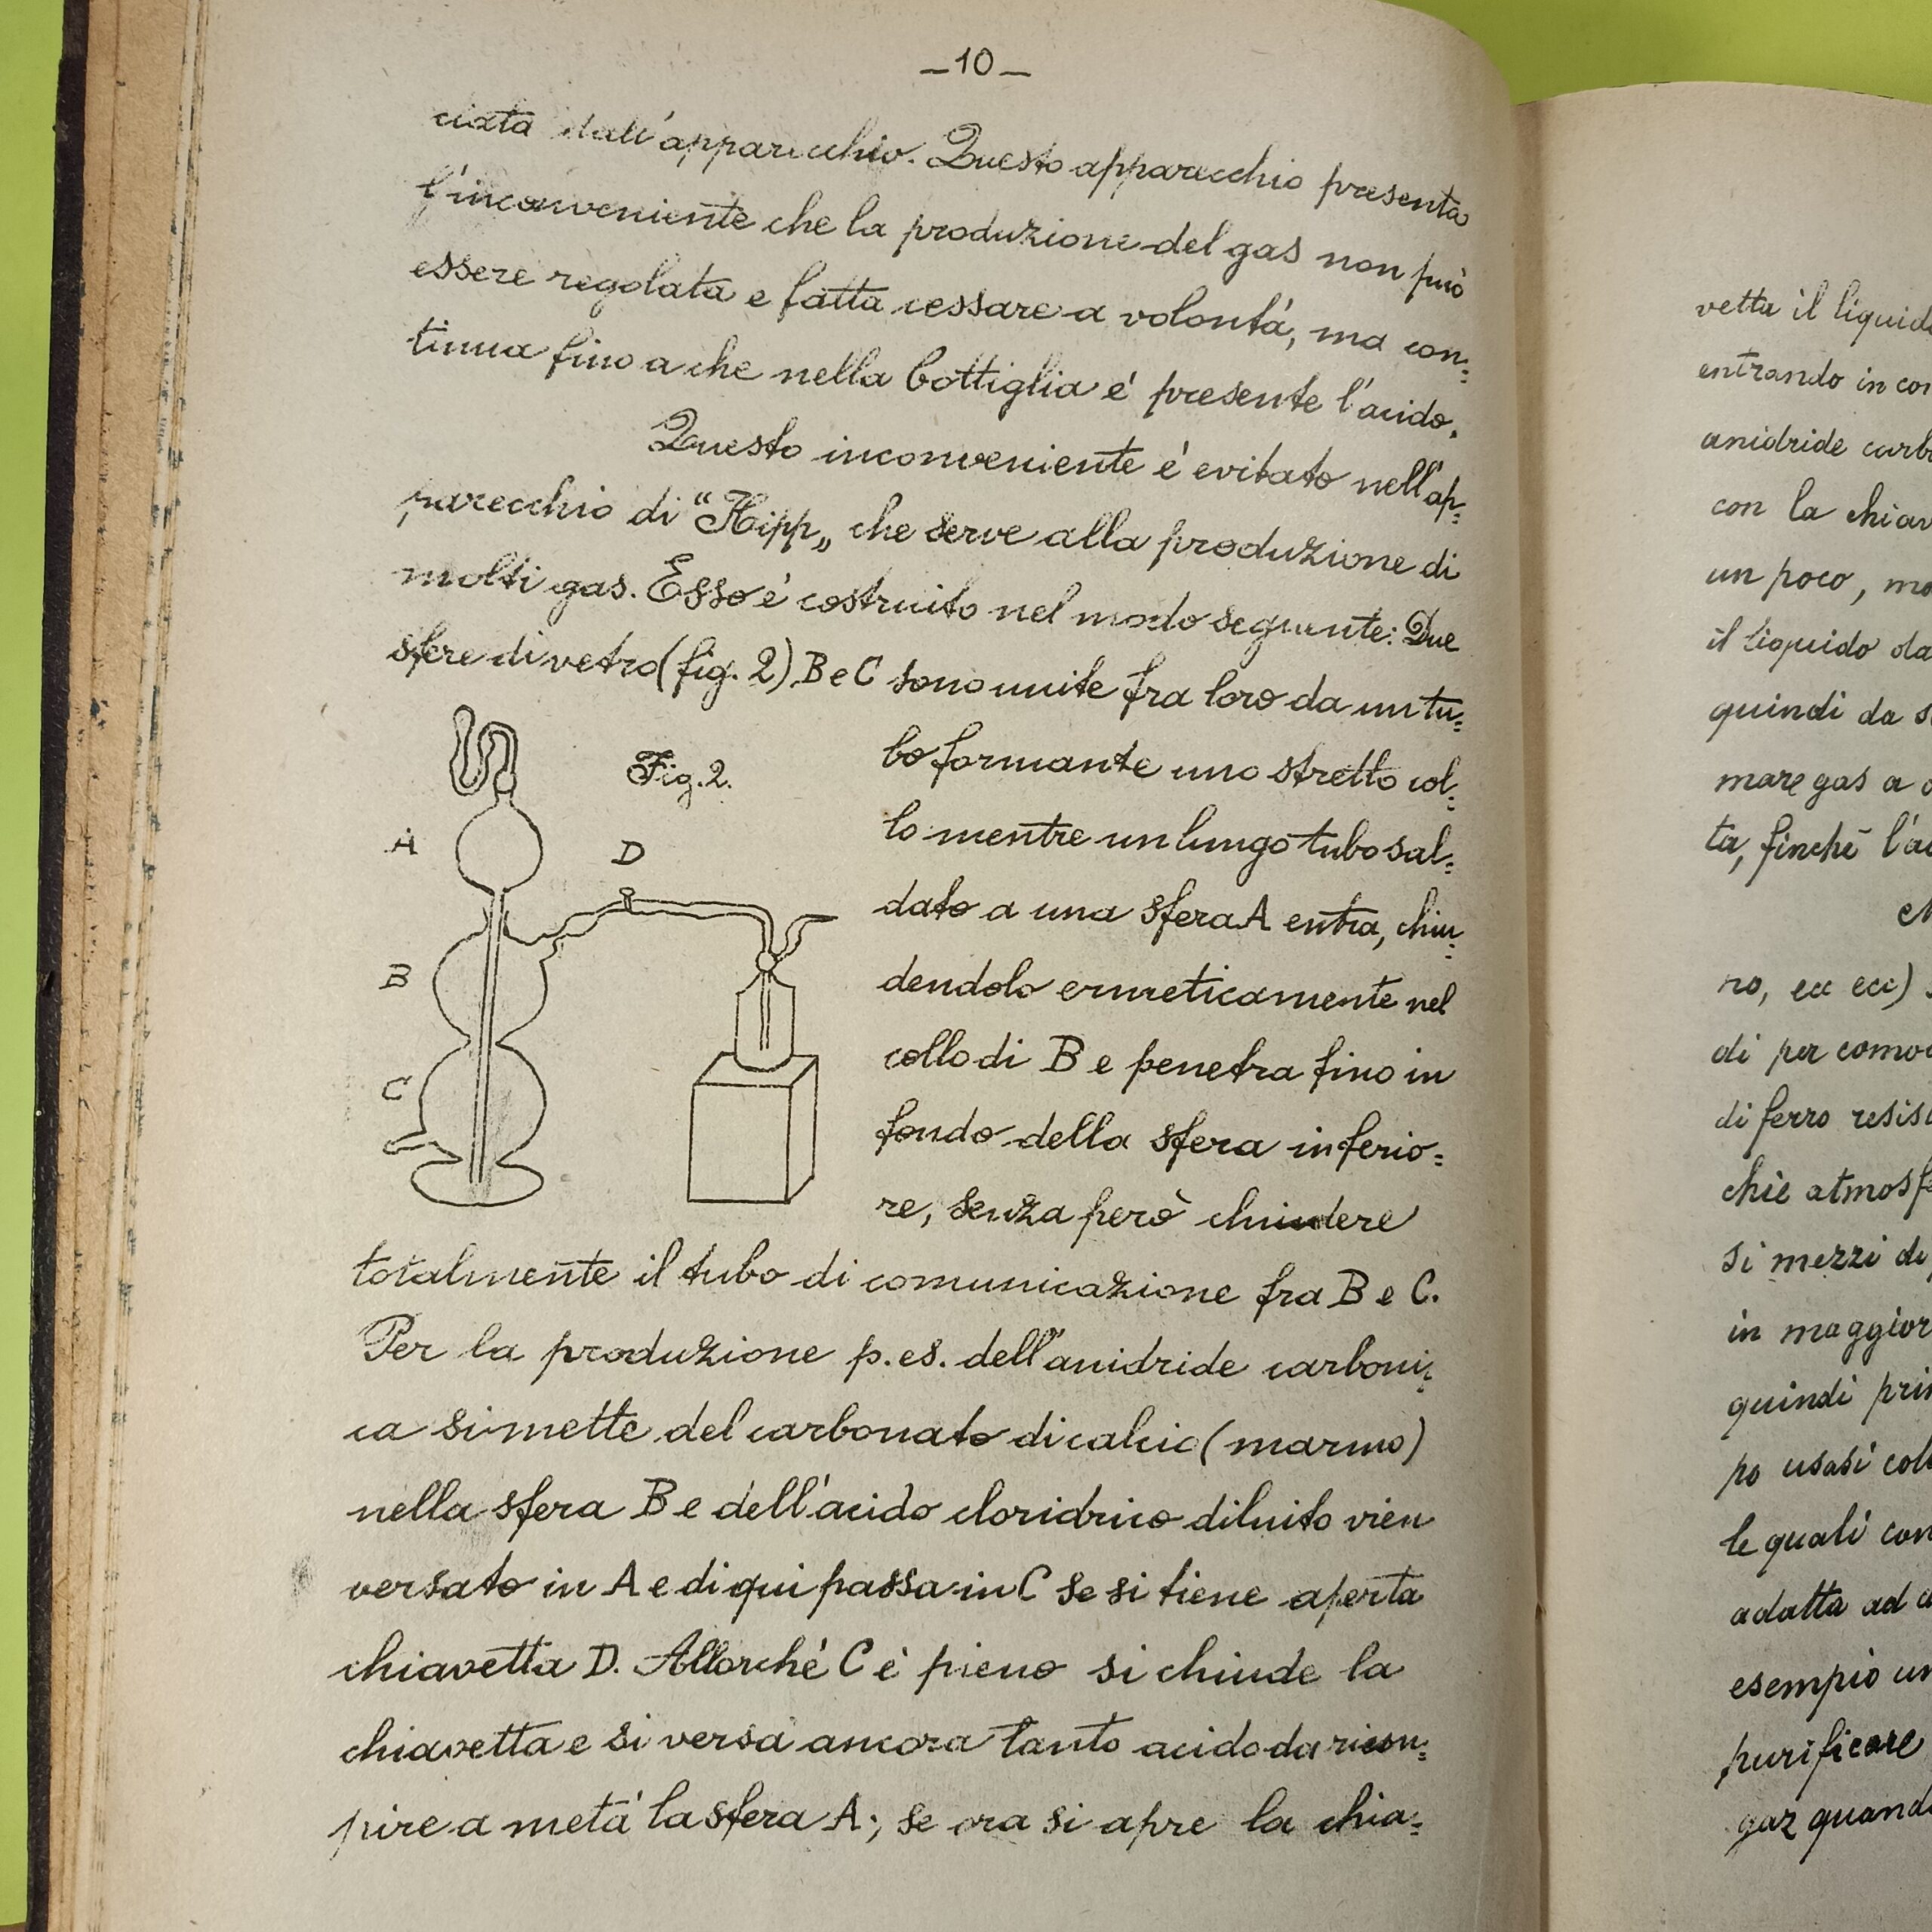 –10–
ciata dall'apparecchio. Questo apparecchio presenta
l'inconveniente che la produzione del gas non può
essere regolata e fatta cessare a volontá, ma con=
tinua fino a che nella bottiglia é presente l'acido.
Questo inconveniente é evitato nell'ap=
parecchio di “Kipp„ che serve alla produzione di
molti gas. Esso é costruito nel modo seguente: Due
sfere di vetro (fig. 2) B e C sono unite fra loro da un tu=
Fig. 2.
bo formante uno stretto col=
lo mentre un lungo tubo sal=
dato a una sfera A entra, chiu=
dendolo ermeticamente nel
collo di B e penetra fino in
fondo della sfera inferio=
re, senza però chiudere
A
D
B
C
totalmente il tubo di comunicazione fra B e C.
Per la produzione p. es. dell'anidride carboni=
ca si mette del carbonato di calcio (marmo)
nella sfera B e dell'ácido cloridrico diluito vien
versato in A e di qui passa in C se si tiene aperta
chiavetta D. Allorché C é pieno si chiude la
chiavetta e si versa ancora tanto acido da riem=
pire a metá la sfera A; se ora si apre la chia=
vetta il liquido
entrando in con
anidride carbo
con la chiav
un poco, ma
il liquido da
quindi da s
mare gas a
ta, finché l'a
ro, ecc ecc)
di per comod
di ferro resis
chie atmosfe
si mezzi di
in maggior
quindi prim
po usasi col
le quali con
adatta ad a
esempio un
purificare
gaz quand